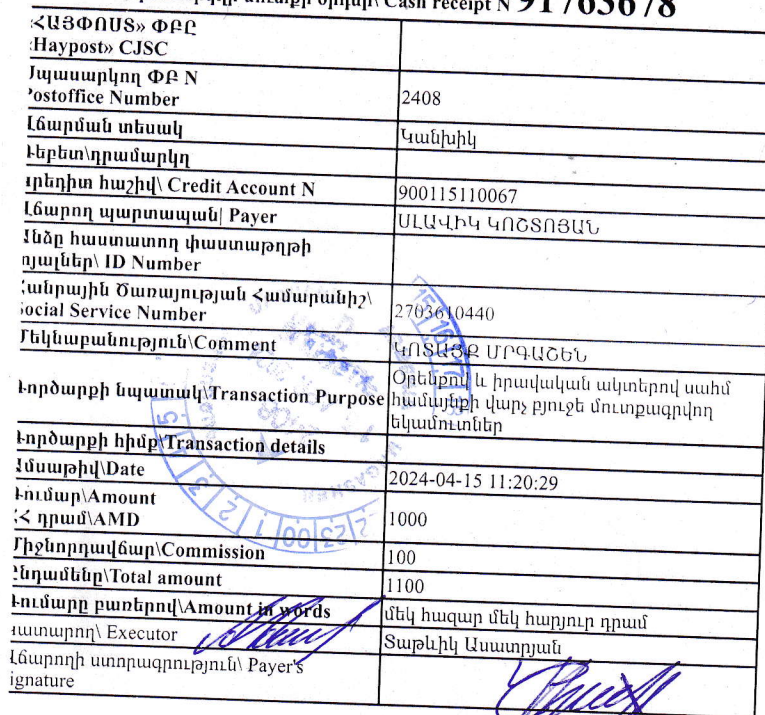 Cash receipt N 91763678
«ՀԱՅՓՈՍՏ» ՓԲԸ
«Haypost» CJSC
Սպասարկող ՓԲ N
Postoffice Number
2408
Վճարման տեսակ
Կանխիկ
Դեբետ\դրամարկղ
Կրեդիտ հաշիվ\ Credit Account N
900115110067
Վճարող պարտապան| Payer
ՍԼԱՎԻԿ ԿՈՇՏՈՅԱՆ
Անձը հաստատող փաստաթղթի
տվյալներ\ ID Number
Հանրային Ծառայության Համարանիշ\
Social Service Number
2703610440
Մեկնաբանություն\Comment
ԿՈՏԱՅՔ ՄՐԳԱՇԵՆ
Գործարքի նպատակ\Transaction Purpose
Օրենքով և իրավական ակտերով սահմ
համայնքի վարչ բյուջե մուտքագրվող
եկամուտներ
Գործարքի հիմք\Transaction details
Ամսաթիվ\Date
2024-04-15 11:20:29
Գումար\Amount
ՀՀ դրամ\AMD
1000
Միջնորդավճար\Commission
100
Ընդամենը\Total amount
1100
Գումարը բառերով\Amount in words
մեկ հազար մեկ հարյուր դրամ
Կատարող\ Executor
Տաթևիկ Ասատրյան
Վճարողի ստորագրություն\ Payer's
signature